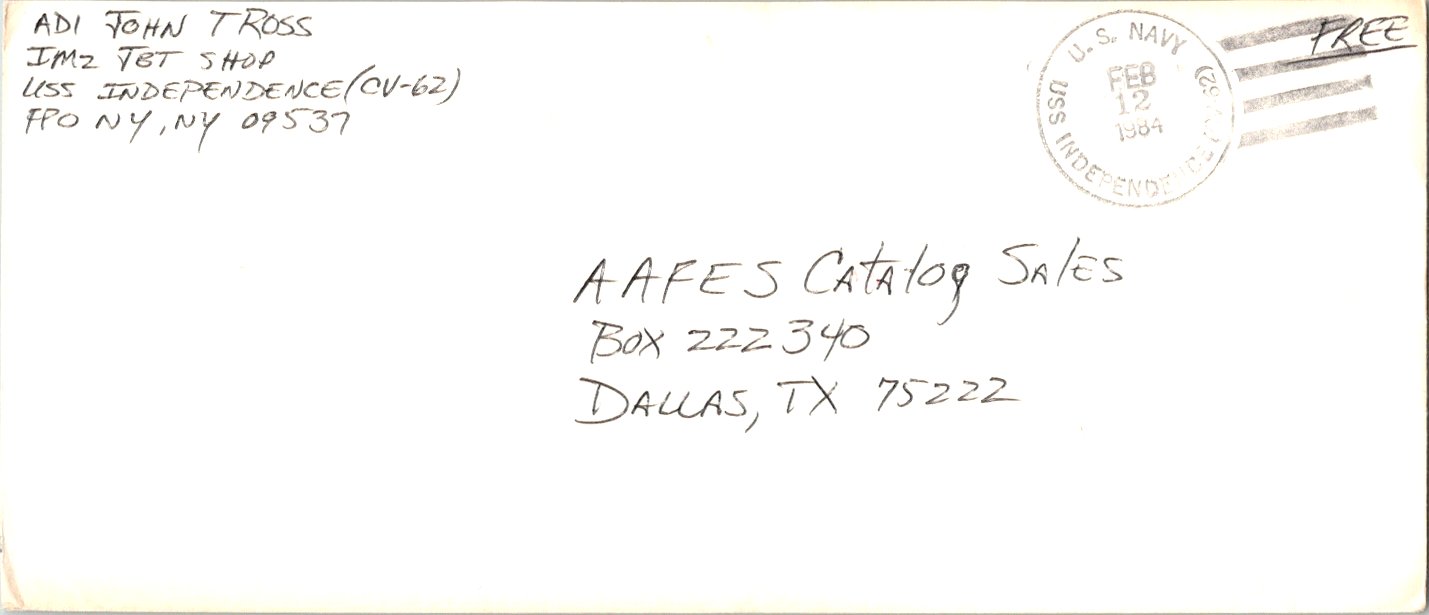 AD1 JOHN T ROSS
IM2 JET SHOP
USS INDEPENDENCE (CV-62)
FPO NY, NY 09537
U.S. NAVY
FEB
12
1984
USS INDEPENDENCE (CV-62)
FREE
AAFES Catalog Sales
Box 222340
DALLAS, TX 75222